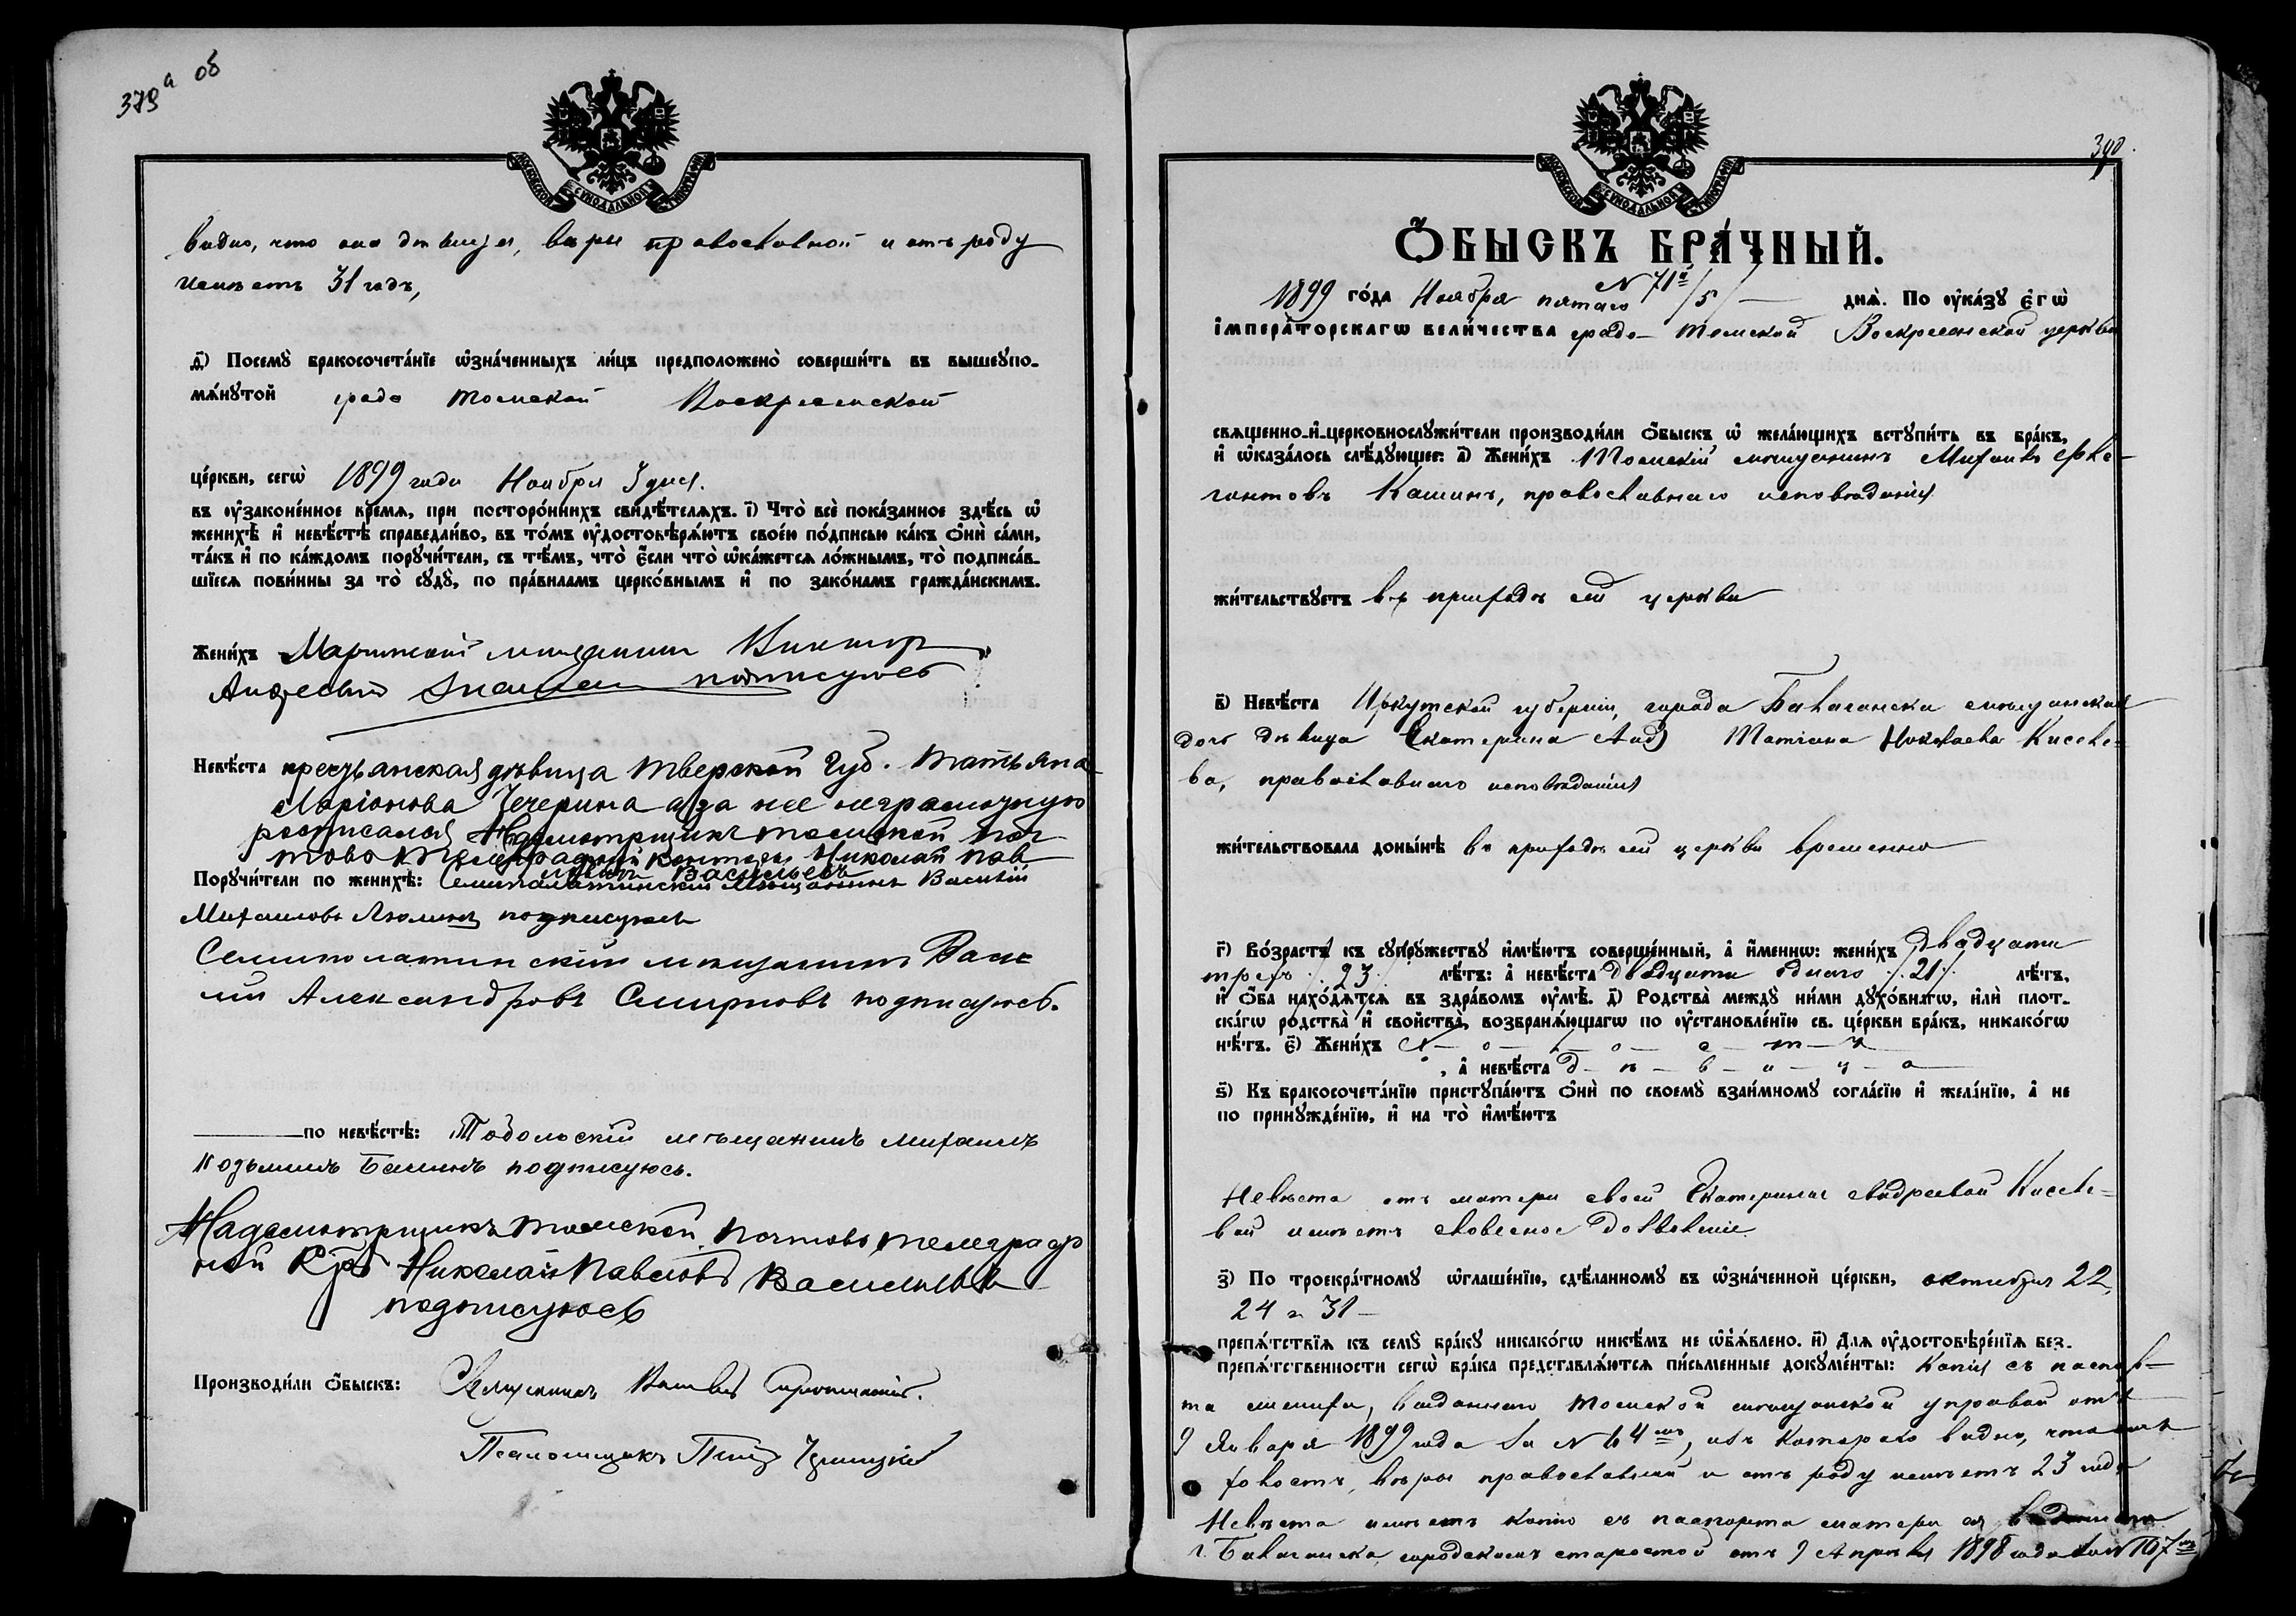 379а об
МОСКОВСКОЙ СѴНОДАЛЬНОЙ ТИПОГРАФІИ
видно, что она дѣвица, вѣры православной и отъ роду
имѣетъ 31 годъ,
ѳ҃) Посемꙋ̀ бракосочета́нїе ѡ҆зна́ченныхъ ли́цъ предположено̀ соверши́ть въ вышеꙋпо-
мѧ́нꙋтой градо Томской Воскресенской
це́ркви, сегѡ̀ 1899 года Ноября 5 дня.
въ ᲂу҆зако́нен́ное вре́мѧ, при посторо́ннихъ свидѣ́телѧхъ. і҃) Что̀ всѐ пока́занное здѣ́сь ѡ҆
женихѣ̀ и҆ невѣ́стѣ справедли́во, въ то́мъ ᲂу҆достовѣрѧ́ютъ свое́ю по́дписью ка́къ ѻ҆нѝ са́ми,
та́къ и҆ по ка́ждомъ порꙋчи́тели, съ тѣ́мъ, что̀ є҆́сли что̀ ѡ҆ка́жетсѧ ло́жнымъ, то̀ подписа́в-
шїесѧ пови́нны за то̀ сꙋдꙋ̀, по пра́виламъ церко́внымъ и҆ по зако́намъ гражда́нскимъ.
Жени́хъ Маріинскій мещанинъ Викторъ
Андреевъ подписуюсь
Невѣ́ста крестьянская дѣвица Тверской Губ. Татьяна
Ларіонова Чечерина а за нее неграмотную
росписался Надсмотрщикъ томской поч
тово телеграфной конторы Николай Пав
ловъ Васильевъ
Порꙋчи́тели по женихѣ̀: Семипалатинскій мѣщанинъ Василій
Михаиловъ подписуюсь
Семиполатинскій мещанинъ Васи
лій Александровъ Смирновъ подписуюсь.
по невѣ́стѣ: Тобольскій мѣщанинъ Михаилъ
Козьминъ Баминъ подписуюсь.
Надсмотрщикъ томской почтово телеграф
ной Николай Павловъ Васильевъ
подписуюсь
Производи́ли ѻ҆́быскъ: Священникъ
Псаломщикъ Петръ
390.
МОСКОВСКОЙ СѴНОДАЛЬНОЙ ТИПОГРАФІИ
Ѻ҆́БЫСКЪ БРА́ЧНЫЙ.
N 71й
1899 го́да Ноября пятаго /5/ днѧ̀. По ᲂу҆ка́зꙋ є҆гѡ̀
і҆мпера́торскагѡ вели́чества градо- Томской Воскресенской церкви
свѧще́нно-и҆-церковнослꙋжи́тели производи́ли ѻ҆́быскъ ѡ҆ жела́ющихъ встꙋпи́ть въ бра́къ,
и҆ ѡ҆каза́лось слѣ́дꙋющее: а҃) Жени́хъ Томскій мѣщанинъ Михаилъ
Кашинъ, православнаго исповѣданія
жи́тельствꙋетъ въ приходѣ сей церкви
в҃) Невѣ́ста Иркутской губерніи, города Балаганска мѣщанская
дочь дѣвица Татіана Николаева Киселе-
ва, православнаго исповѣданія
жи́тельствовала доны́нѣ въ приходѣ сей церкви временно
г҃) Во́зрастъ къ сꙋпрꙋ́жествꙋ и҆мѣ́ютъ соверше́нный, а҆ и҆́менно: жени́хъ двадцати
трехъ /23/ лѣ́тъ: а҆ невѣ́ста двадцати одного /21/ лѣ́тъ,
и҆ ѻ҆́ба нахо́дѧтсѧ въ здра́вомъ ᲂу҆мѣ̀. д҃) Родства̀ междꙋ̀ ни́ми дꙋхо́внагѡ, и҆лѝ плот-
ска́гѡ родства̀ и҆ свойства̀, возбранѧ́ющагѡ по ᲂу҆становле́нїю св. це́ркви бра́къ, никако́гѡ
нѣ́тъ. є҃) Жени́хъ х- о- л- о- с- т- ъ
, а҆ невѣ́ста д- ѣ- в- и- ц- а
ѕ҃) Къ бракосочета́нїю пристꙋпа́ютъ ѻ҆нѝ по своемꙋ̀ взаи́мномꙋ согла́сїю и҆ жела́нїю, а҆ не
по принꙋжде́нїю, и҆ на то̀ и҆мѣ́ютъ
Невѣста отъ матери своей Екатерины Андреевой Киселе-
вой имѣетъ словесное дозволеніе
з҃) По троекра́тномꙋ ѡ҆глаше́нїю, сдѣ́ланномꙋ въ ѡ҆зна́ченной це́ркви, октября 22,
24 и 31
препѧ́тствїѧ къ семꙋ̀ бра́кꙋ никако́гѡ никѣ́мъ не ѡ҆б̾ѧ́влено. и҃) Длѧ ᲂу҆достовѣре́нїѧ без-
препѧ́тственности сегѡ̀ бра́ка представлѧ́ютсѧ пи́сьменные докꙋме́нты: Копія съ паспор-
та жениха, выданнаго Томской мѣщанской управой отъ
9 Января 1899 года за N 64мъ, изъ котораго видно, что онъ
холостъ, вѣры православной и отъ роду имѣетъ 23 года
Невѣста имѣетъ копію съ паспорта матери ея,
г. Балаганска городскимъ старостой отъ 9 Апрѣля 1898 года за N 107мъ